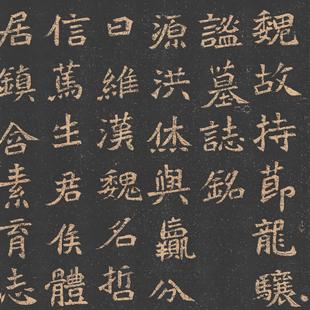 魏故持節龍驤
謚墓誌銘
源洪休與贏分
曰維漢魏名哲
信篤生君侯體
居鎮含素育志